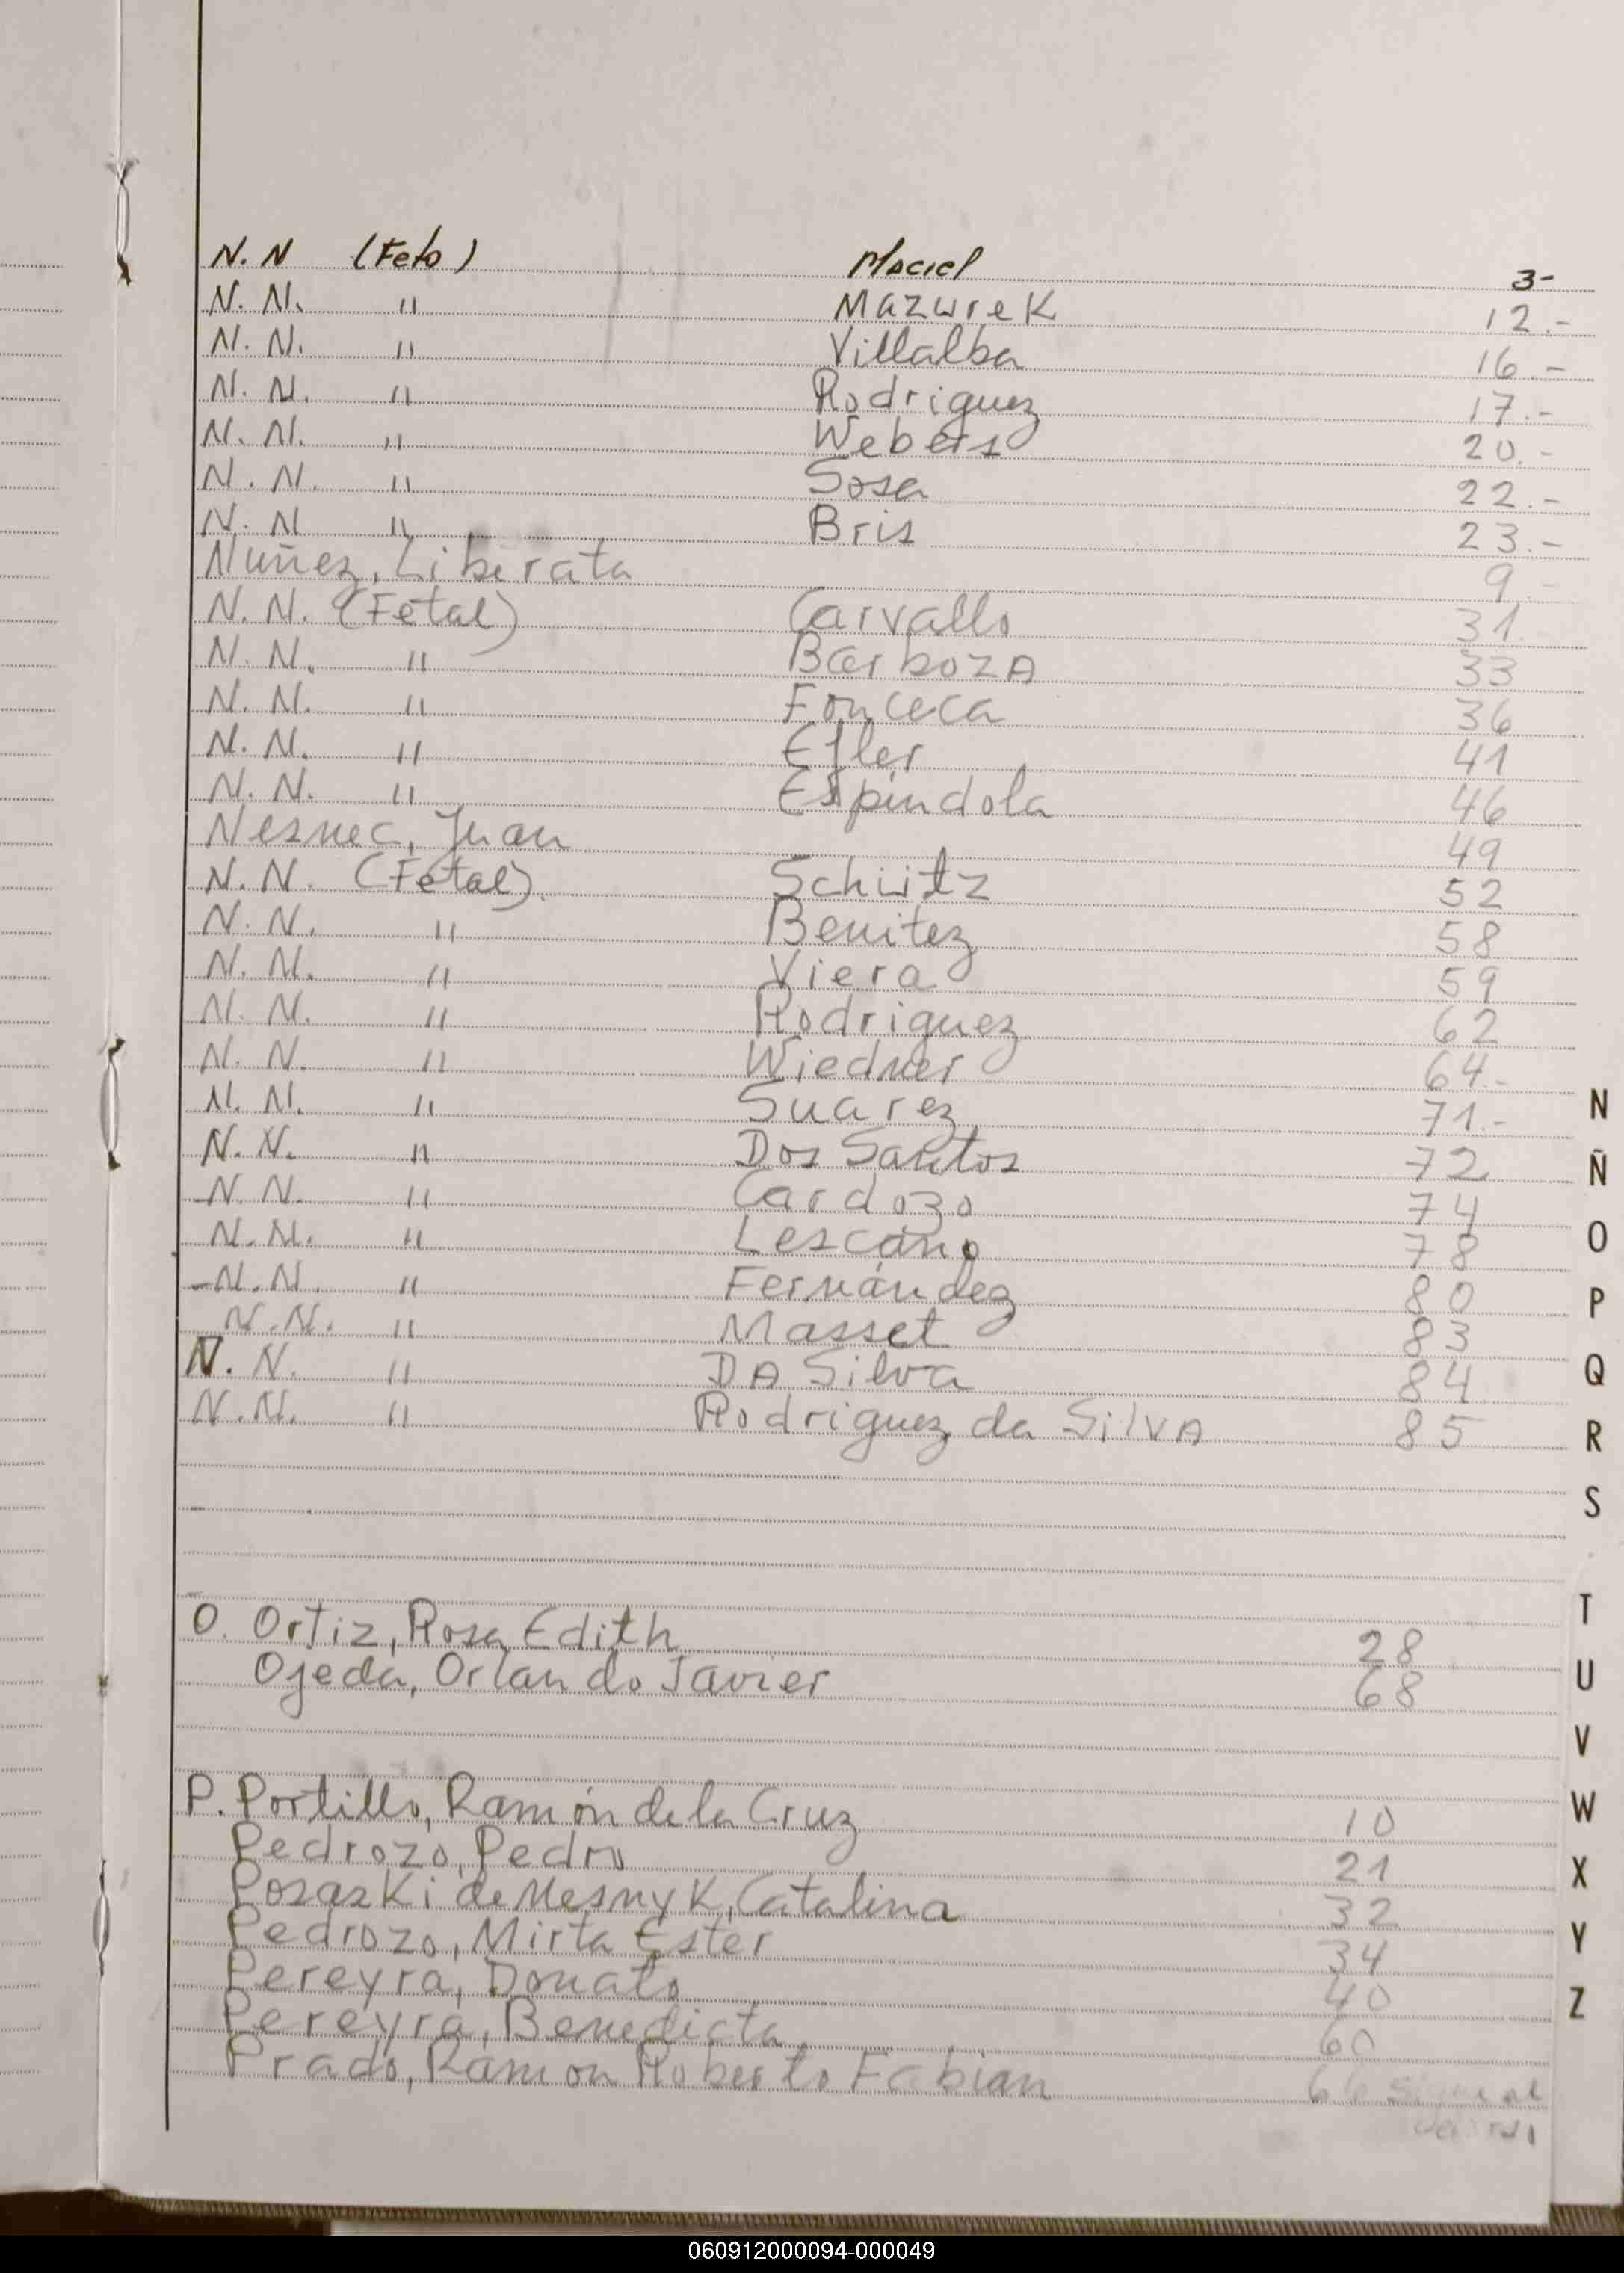 N. N (Feto) Maciel 3-
N. N. " Mazurek 12.-
N. N. " Villalba 16.-
N. N. " Rodriguez 17.-
N. N. " Webers 20.-
N. N. " Sosa 22.-
N. N " Bris 23.-
Nuñez, Liberata 9.-
N. N. (Fetal) Carvallo 31
N. N. " BarbozA 33
N. N. " Fonceca 36
N. N. " Efler 41
N. N. " Espindola 46
Nesnec, Juan 49
N. N. (Fetal) Schütz 52
N. N. " Benitez 58
N. N. " Viera 59
N. N. " Rodriguez 62
N. N. " Wiedner 64.-
N. N. " Suarez 71.-
N. N. " Dos Santos 72
N. N. " Cardozo 74
N. N. " Lescano 78
N. N. " Fernández 80
N. N. " Masset 83
N. N. " DA Silva 84
N. N. " Rodriguez da SilVA 85
O. Ortiz, Rosa Edith 28
Ojeda, Orlando Javier 68
P. Portillo, Ramón de la Cruz 10
Pedrozo, Pedro 21
Posaski de Mesnyk, Catalina 32
Pedrozo, Mirta Ester 34
Pereyra, Donato 40
Pereyra, Benedicta 60
Prado, Ramon Roberto Fabian 66
N
Ñ
O
P
Q
R
S
T
U
V
W
X
Y
Z
060912000094-000049